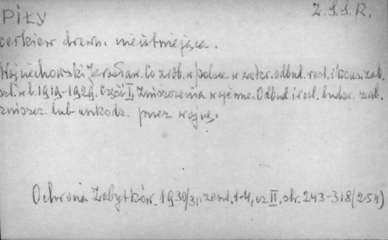 PIŁY Z.S.S.R.
cerkiew drewn. nieistniejąca.
Wojciechowski Jarosław. Co zrob. w Polsce w zakr. odbud. rest. i konserw. zab.
szt. w l. 1919-1929. Część I. Zniszczenia wojenne. Odbud. i rest. budow. zab.
zniszcz. lub uszkodz. przez wojnę.
Ochrona Zabytków. 1930/31, zesz. 1-4, cz II, str. 243-318 (254)